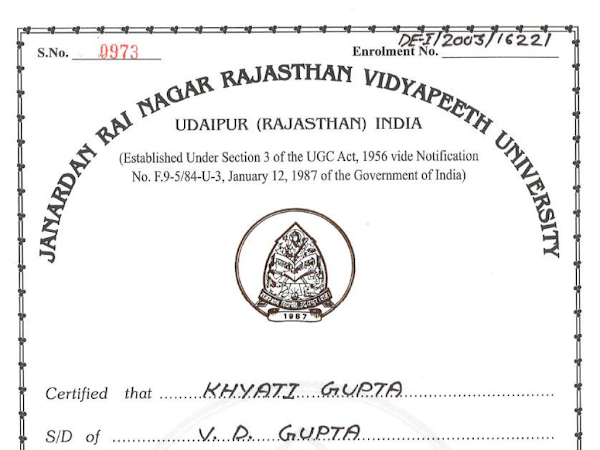 S.No. 0973
Enrolment No. DE-I/2003/16221
JANARDAN RAI NAGAR RAJASTHAN VIDYAPEETH UNIVERSITY
UDAIPUR (RAJASTHAN) INDIA
(Established Under Section 3 of the UGC Act, 1956 vide Notification
No. F.9-5/84-U-3, January 12, 1987 of the Government of India)
1987
Certified that KHYATI GUPTA
S/D of V. D. GUPTA